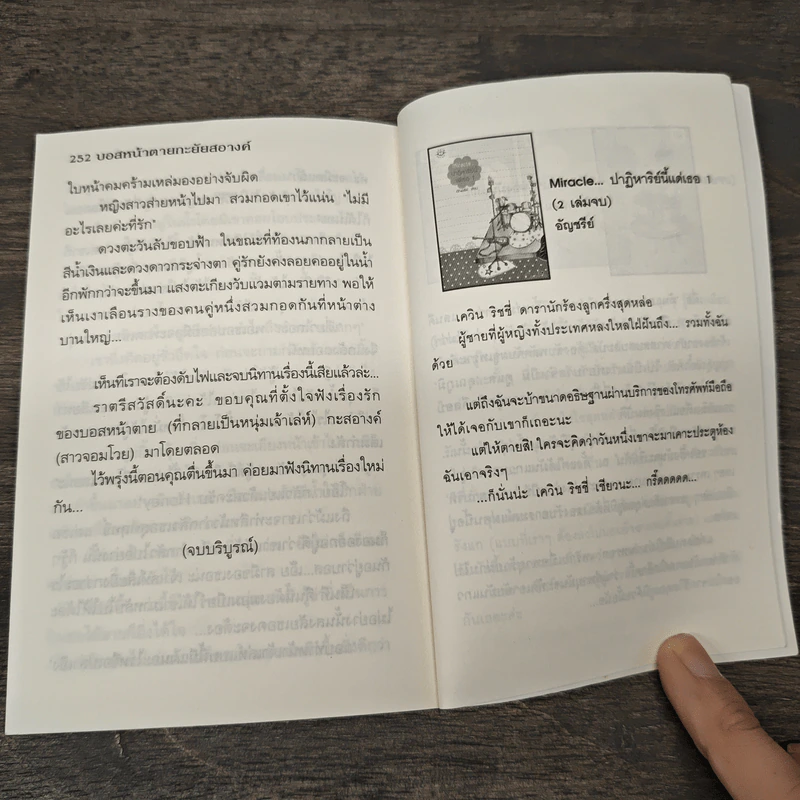 252 บอสหน้าตายกะยัยสอางค์
ใบหน้าคมคร้ามเหล่มองอย่างจับผิด
หญิงสาวส่ายหน้าไปมา สวมกอดเขาไว้แน่น "ไม่มี
อะไรเลยค่ะที่รัก"
ดวงตะวันลับขอบฟ้า ในขณะที่ท้องนภากลายเป็น
สีน้ำเงินและดวงดาวกระจ่างตา คู่รักยังคงลอยคออยู่ในน้ำ
อีกพักกว่าจะขึ้นมา แสงตะเกียงวับแวมตามรายทาง พอให้
เห็นเงาเลือนรางของคนคู่หนึ่งสวมกอดกันที่หน้าต่าง
บานใหญ่...
เห็นทีเราจะต้องดับไฟและจบนิทานเรื่องนี้เสียแล้วล่ะ...
ราตรีสวัสดิ์นะคะ ขอบคุณที่ตั้งใจฟังเรื่องรัก
ของบอสหน้าตาย (ที่กลายเป็นหนุ่มเจ้าเล่ห์) กะสอางค์
(สาวจอมโวย) มาโดยตลอด
ไว้พรุ่งนี้ตอนคุณตื่นขึ้นมา ค่อยมาฟังนิทานเรื่องใหม่
กัน...
(จบบริบูรณ์)
Miracle... ปาฏิหาริย์นี้แด่เธอ 1
(2 เล่มจบ)
อัญชรีย์
เควิน ริชชี่ ดารานักร้องลูกครึ่งสุดหล่อ
ผู้ชายที่ผู้หญิงทั้งประเทศหลงใหลใฝ่ฝันถึง... รวมทั้งฉัน
ด้วย
แต่ถึงฉันจะบ้าขนาดอธิษฐานผ่านบริการของโทรศัพท์มือถือ
ให้ได้เจอกับเขาก็เถอะนะ
แต่ให้ตายสิ! ใครจะคิดว่าวันหนึ่งเขาจะมาเคาะประตูห้อง
ฉันเอาจริงๆ
...ก็นั่นน่ะ เควิน ริชชี่ เชียวนะ... กรี๊ดดดดด...